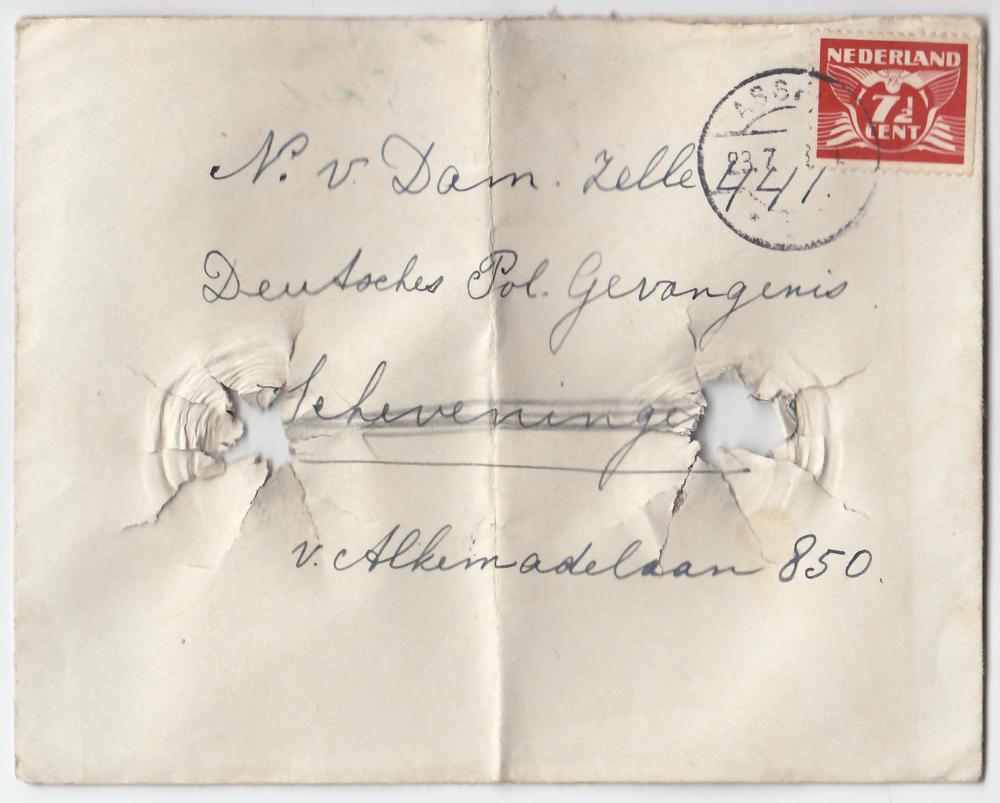 NEDERLAND
7½
CENT
23.7
N. v. Dam. Zelle 441.
Deutsches Pol. Gevangenis
Scheveningen
v. Alkemadelaan 850.